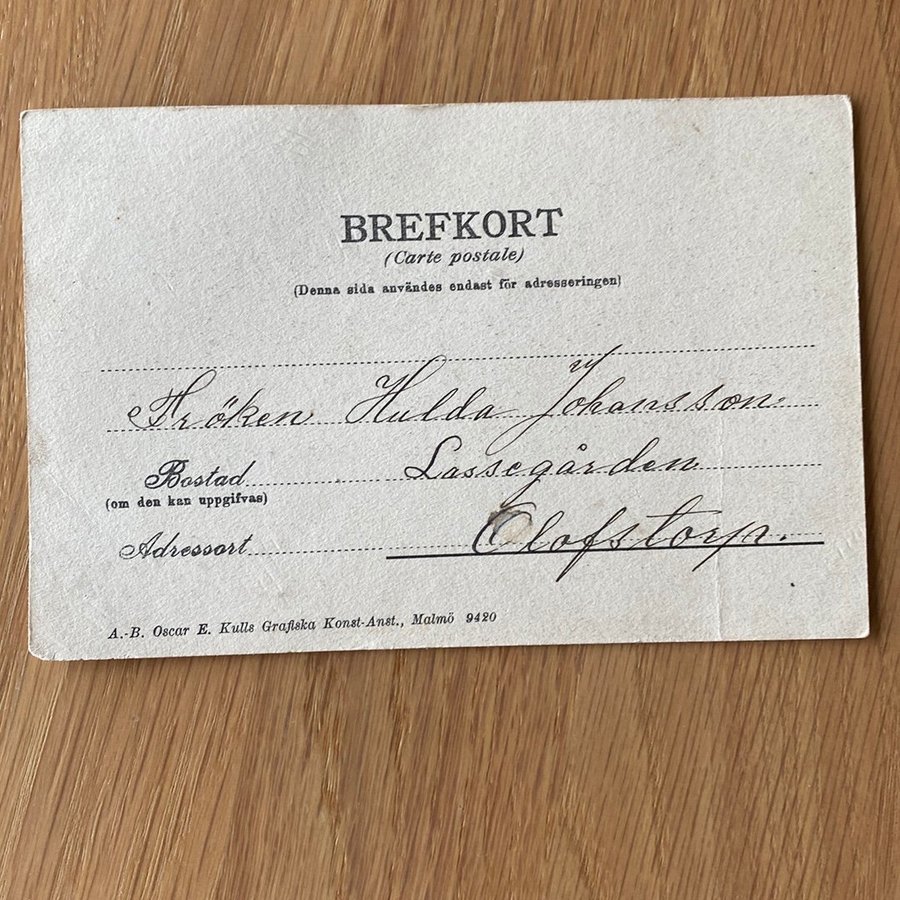 BREFKORT
(Carte postale)
(Denna sida användes endast för adresseringen)
Fröken Hulda Johansson.
Bostad Lassegården
(om den kan uppgifvas)
Adressort Olofstorp.
A.-B. Oscar E. Kulls Grafiska Konst-Anst., Malmö 9420